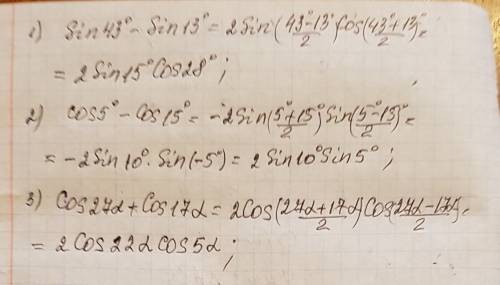 1) Sin43° - Sin13° = 2Sin(43°-13°/2)Cos(43°+13°/2)=
= 2Sin15°Cos28°;
2) cos5° - Cos15° = -2Sin(5°+15°/2)Sin(5°-15°/2)=
= -2Sin10°·Sin(-5°) = 2Sin10°Sin5°;
3) Cos27α + Cos17α = 2Cos(27α+17α/2)Cos(27α-17α/2)=
= 2Cos22αCos5α;